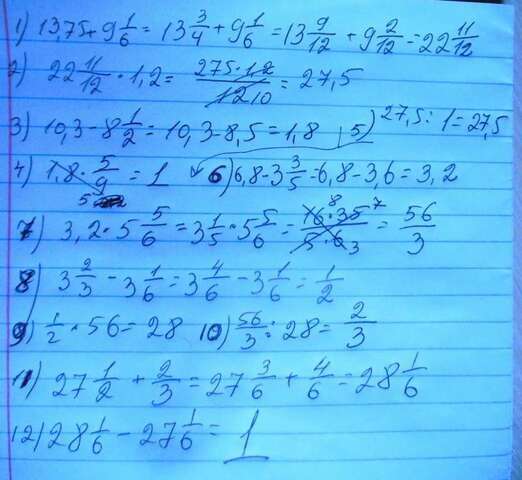 1) 13,75 + 9 1/6 = 13 3/4 + 9 1/6 = 13 9/12 + 9 2/12 = 22 11/12
2) 22 11/12 · 1,2 = 275·1,2/12 10 = 27,5
3) 10,3 - 8 1/2 = 10,3 - 8,5 = 1,8 5) 27,5 : 1 = 27,5
4) 1,8 · 5/9 = 1 6) 6,8 - 3 3/5 = 6,8 - 3,6 = 3,2
7) 3,2 · 5 5/6 = 3 1/5 · 5 5/6 = 16 8 · 35 7/5 · 6 3 = 56/3
8) 3 2/3 - 3 1/6 = 3 4/6 - 3 1/6 = 1/2
9) 1/2 · 56 = 28 10) 56/3 : 28 = 2/3
11) 27 1/2 + 2/3 = 27 3/6 + 4/6 = 28 1/6
12) 28 1/6 - 27 1/6 = 1